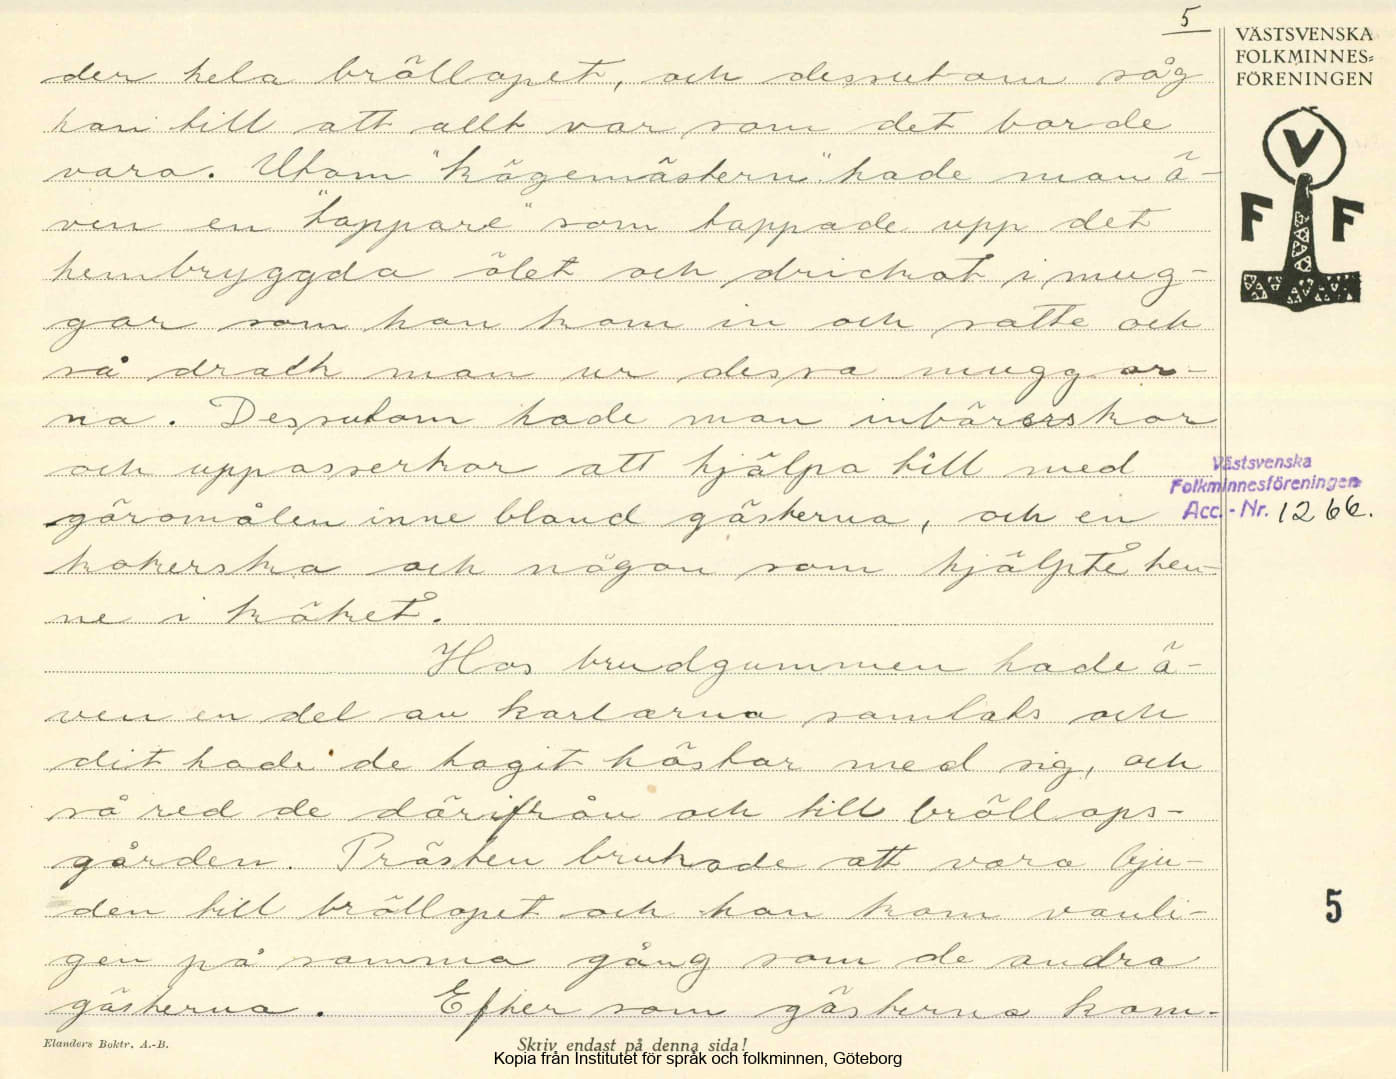 5
VÄSTSVENSKA
FOLKMINNES-
FÖRENINGEN
V
F F
der hela bröllopet, och dessutom såg
han till att allt var som det borde
vara. Utom "kögemästern" hade man ä-
ven en "tappare" som tappade upp det
hembryggda ölet och drickat i mug-
gar som han kom in och satte och
så drack man ur dessa muggar-
na. Dessutom hade man inbärerskor
och uppasserkor att hjälpa till med
göromålen inne bland gästerna, och en
kokerska och någon som hjälpte hen-
ne i köket.
Hos brudgummen hade ä-
ven en del av karlarna samlats och
dit hade de tagit hästar med sig, och
så red de därifrån och till bröllops-
gården. Prästen brukade att vara bju-
den till bröllopet och han kom vanli-
gen på samma gång som de andra
gästerna. Efter som gästerna kom-
Västsvenska
Folkminnesföreningen
Acc.-Nr. 1266.
5
Elanders Boktr. A.-B.
Skriv endast på denna sida!
Kopia från Institutet för språk och folkminnen, Göteborg